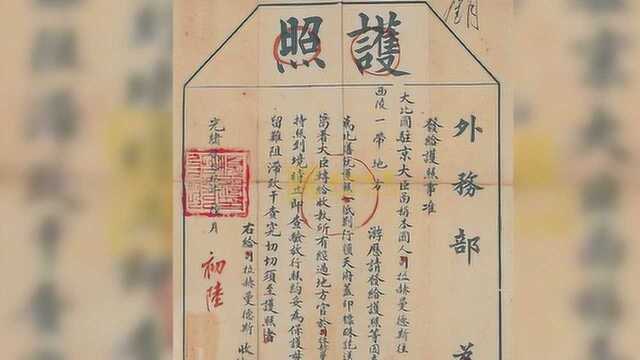 護照
外務部
發給護照事准
大比國駐京大臣函稱本國人拉赫曼德斯往
西陵一帶地方
游歷請發給護照等因
為此繕就護照一紙劄行順天府蓋印標硃訖送
大臣轉給收執所有經過地方官於
持照到境時立即查驗放行照約妥為保護毋
留難阻滯致干查究切切須至護照者
右給拉赫曼德斯收
光緒年月
初陸